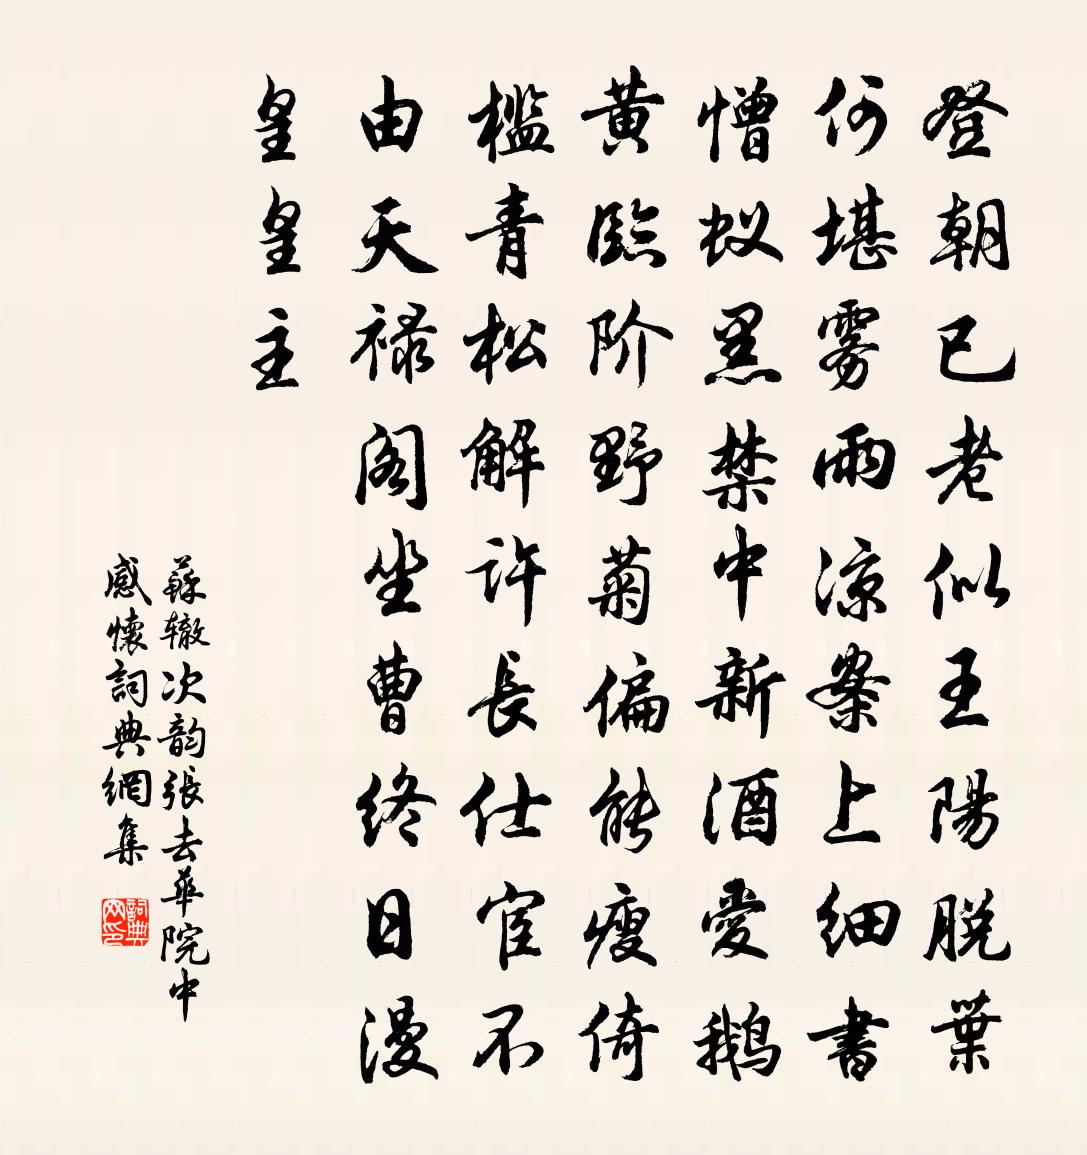 登朝已老似王陽脱葉
何堪雾雨凉案上细書
憎蚁黑禁中新酒愛鹅
黄臨阶野菊偏能瘦倚
槛青松解许長仕宦不
由天禄阁坐曹终日漫
皇皇主
蘇辙次韵張去華院中
感懷詞典網集
詞典网印